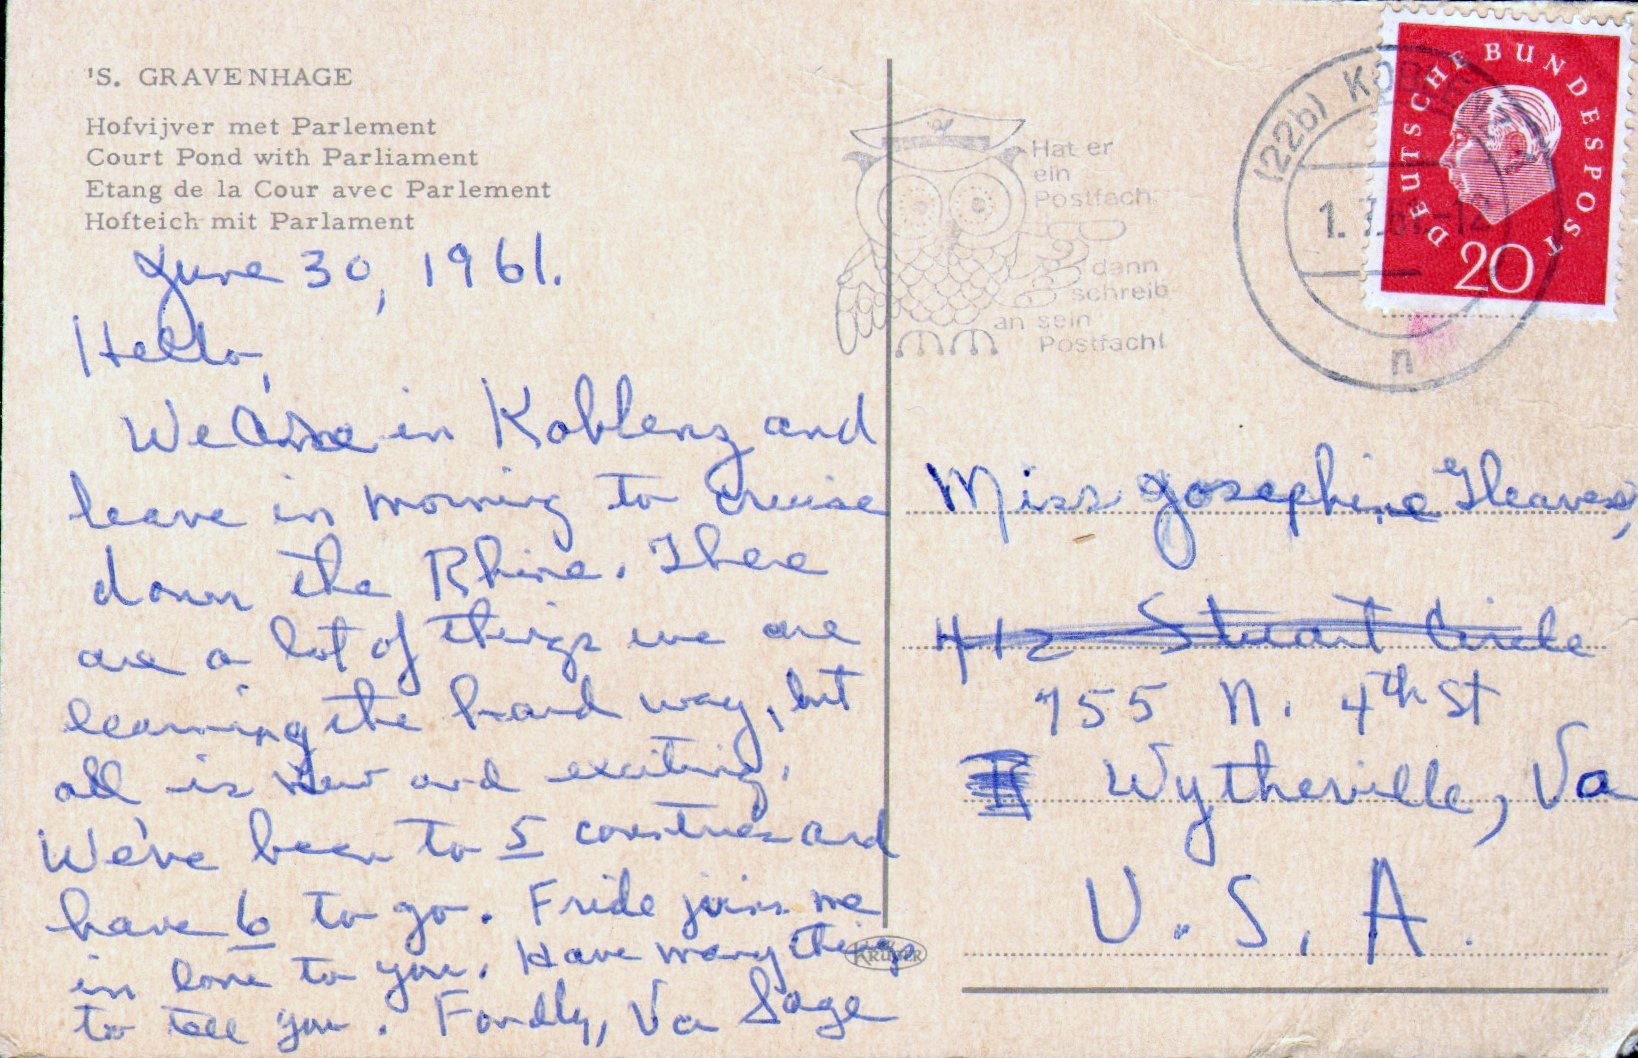 'S. GRAVENHAGE
Hofvijver met Parlement
Court Pond with Parliament
Etang de la Cour avec Parlement
Hofteich mit Parlament
June 30, 1961.
Hello,
We are in Koblenz and
leave in morning to cruise
down the Rhine. There
are a lot of things we are
learning the hard way, but
all is new and exciting.
We've been to 5 countries and
have 6 to go. Fride joins me
in love to you. Have many things
to tell you. Fondly, Va Sage
Hat er
ein
Postfach
dann
schreib
an sein
Postfach!
(22b) KOBLENZ
1. 7.61.-12
n
DEUTSCHE BUNDESPOST
20
Miss Josephine Gleaves,
412 Stuart Circle
755 N. 4th St
Wytheville, Va
U.S.A.
KRUGER